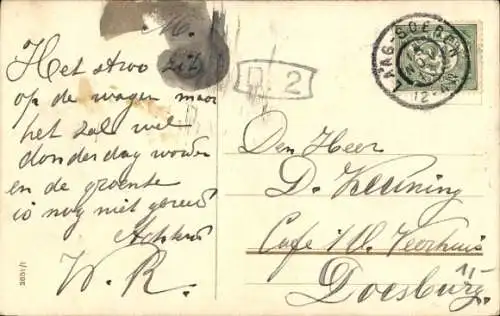 M.
Het stroo zit
op de wagen maar
het zal wel
donderdag worden
en de groente
is nog niet gereed
Achtend
W. R.
B. 2
LAAG-SOEREN
12
Den Heer
D.
Café i/d. Veerhuis
Doesburg.
1,-
3651/1